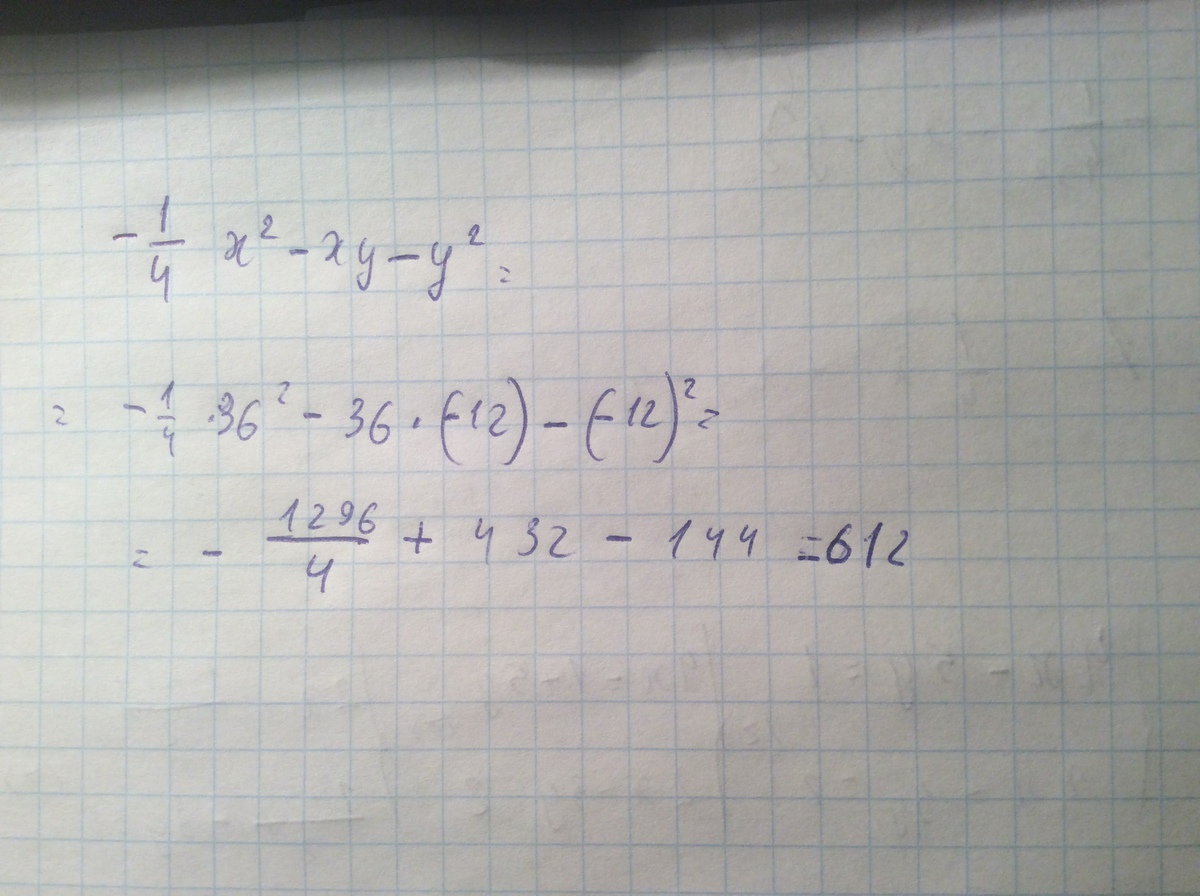 -1/4 x² - xy - y² =
= -1/4 · 36² - 36 · (-12) - (-12)² =
= - 1296/4 + 432 - 144 = 612